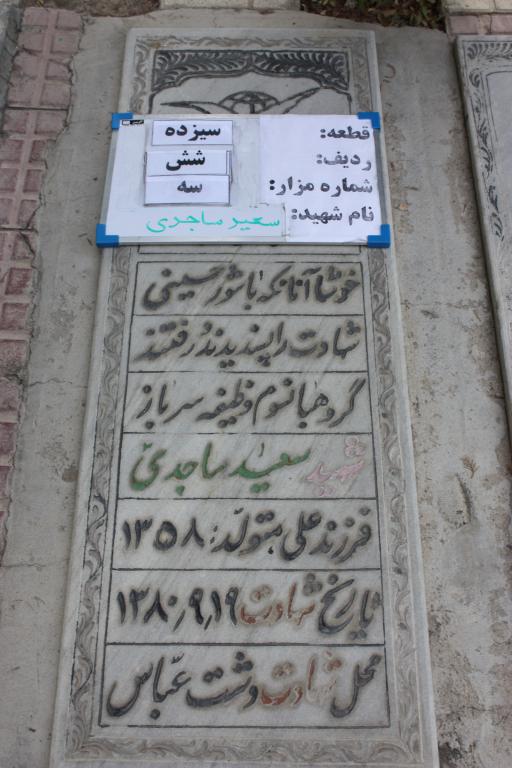 قطعه: سیزده
ردیف: شش
شماره مزار: سه
نام شهید: سعید ساجدی
خوشا آنانکه با شور حسینی
شهادت را پسندیدند و رفتند
گروهبانسوم وظیفه سرباز
شهید سعید ساجدی
فرزند علی متولد: ۱۳۵۸
تاریخ شهادت ۱۳۸۰٫۹٫۱۹
محل شهادت دشت عباس